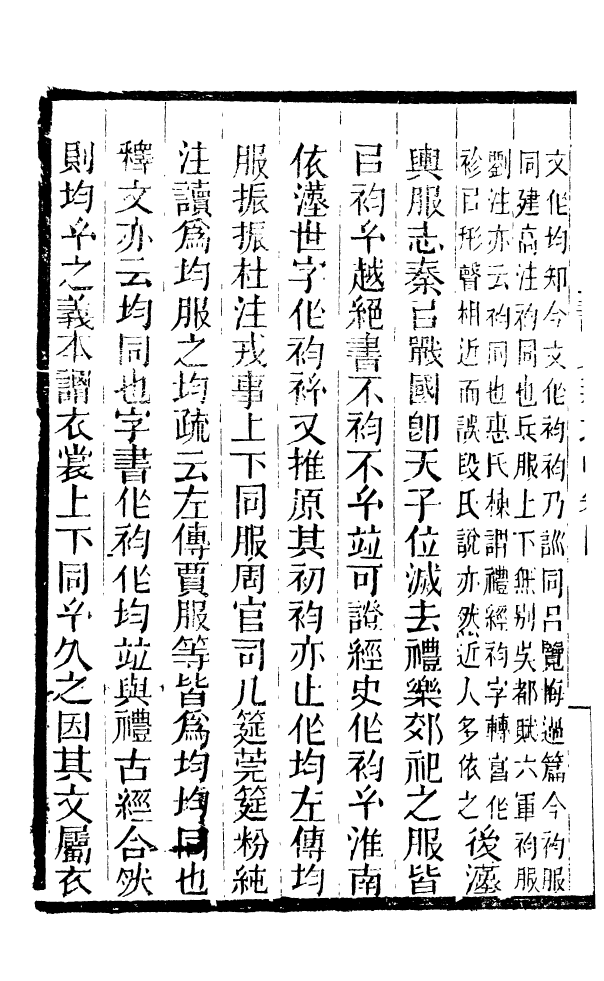 文作均知今文作袀袀乃訓同呂覽悔過篇今袀服
同建高注袀同也兵服上下無別吳都賦六軍袀服
劉注亦云袀同也惠氏棟謂禮經袀字轉寫作
袗㠯形聲相近而誤段氏說亦然近人多依之後漢
輿服志秦㠯戰國卽天子位滅去禮樂郊祀之服皆
㠯袀玄越絕書不袀不玄竝可證經史作袀玄淮南
依漢世字作袀袨又推原其初袀亦止作均左傳均
服振振杜注戎事上下同服周官司几筵莞筵粉純
注讀爲均服之均疏云左傳賈服等皆爲均均同也
釋文亦云均同也字書作袀作均竝與禮古經合然
則均玄之義本謂衣裳上下同玄久之因其文屬衣